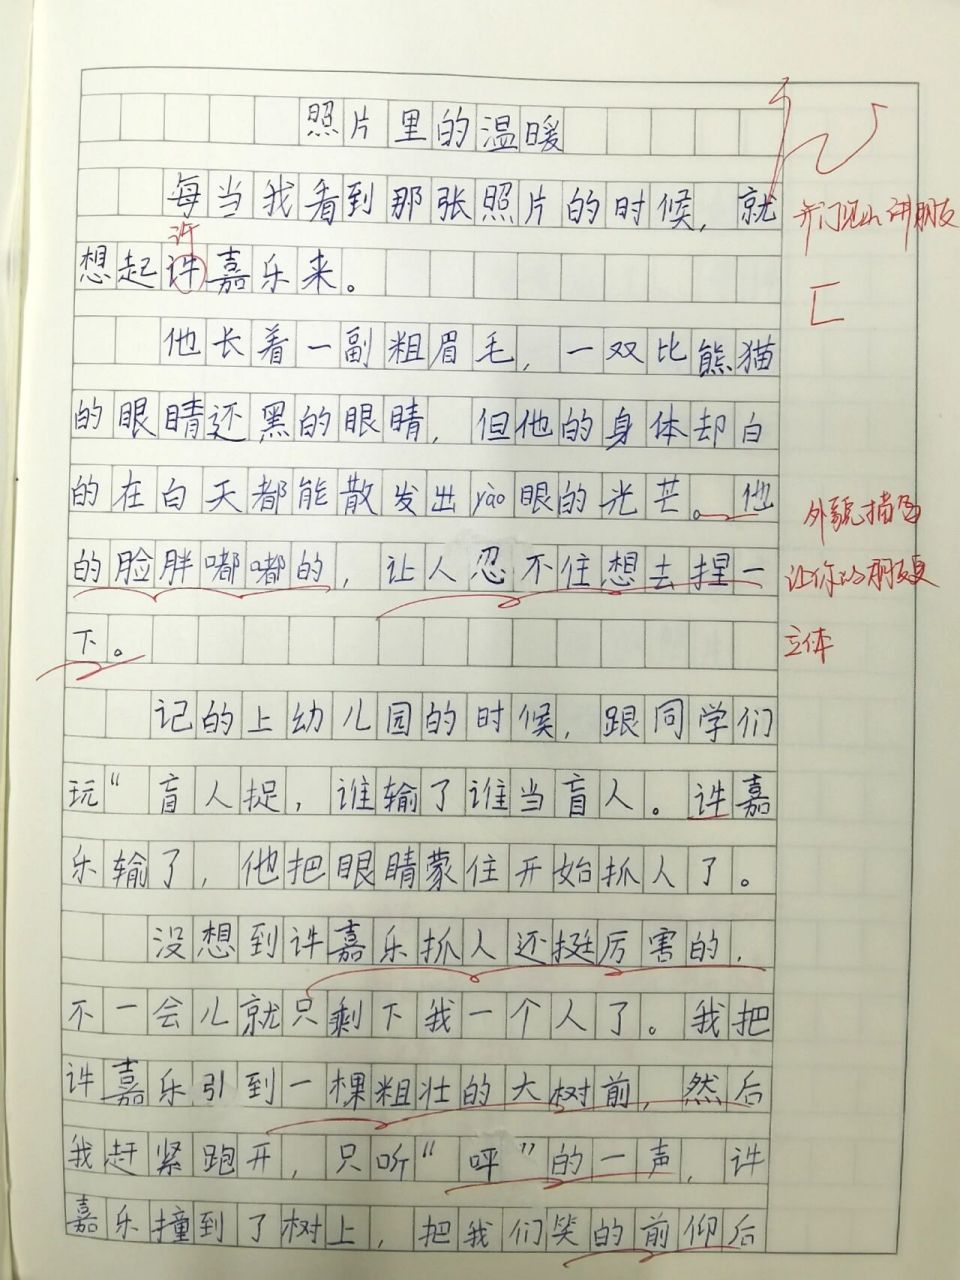 照片里的温暖
每当我看到那张照片的时候，就
开门见山讲朋友
许
想起许嘉乐来。
他长着一副粗眉毛，一双比熊猫
的眼睛还黑的眼睛，但他的身体却白
的在白天都能散发出yào眼的光芒。他
外貌描写
的脸胖嘟嘟的，让人忍不住想去捏一
让你的朋友更
下。
立体
记的上幼儿园的时候，跟同学们
玩“盲人捉，谁输了谁当盲人。许嘉
乐输了，他把眼睛蒙住开始抓人了。
没想到许嘉乐抓人还挺厉害的，
不一会儿就只剩下我一个人了。我把
许嘉乐引到一棵粗壮的大树前，然后
我赶紧跑开，只听“呯”的一声，许
嘉乐撞到了树上，把我们笑的前仰后